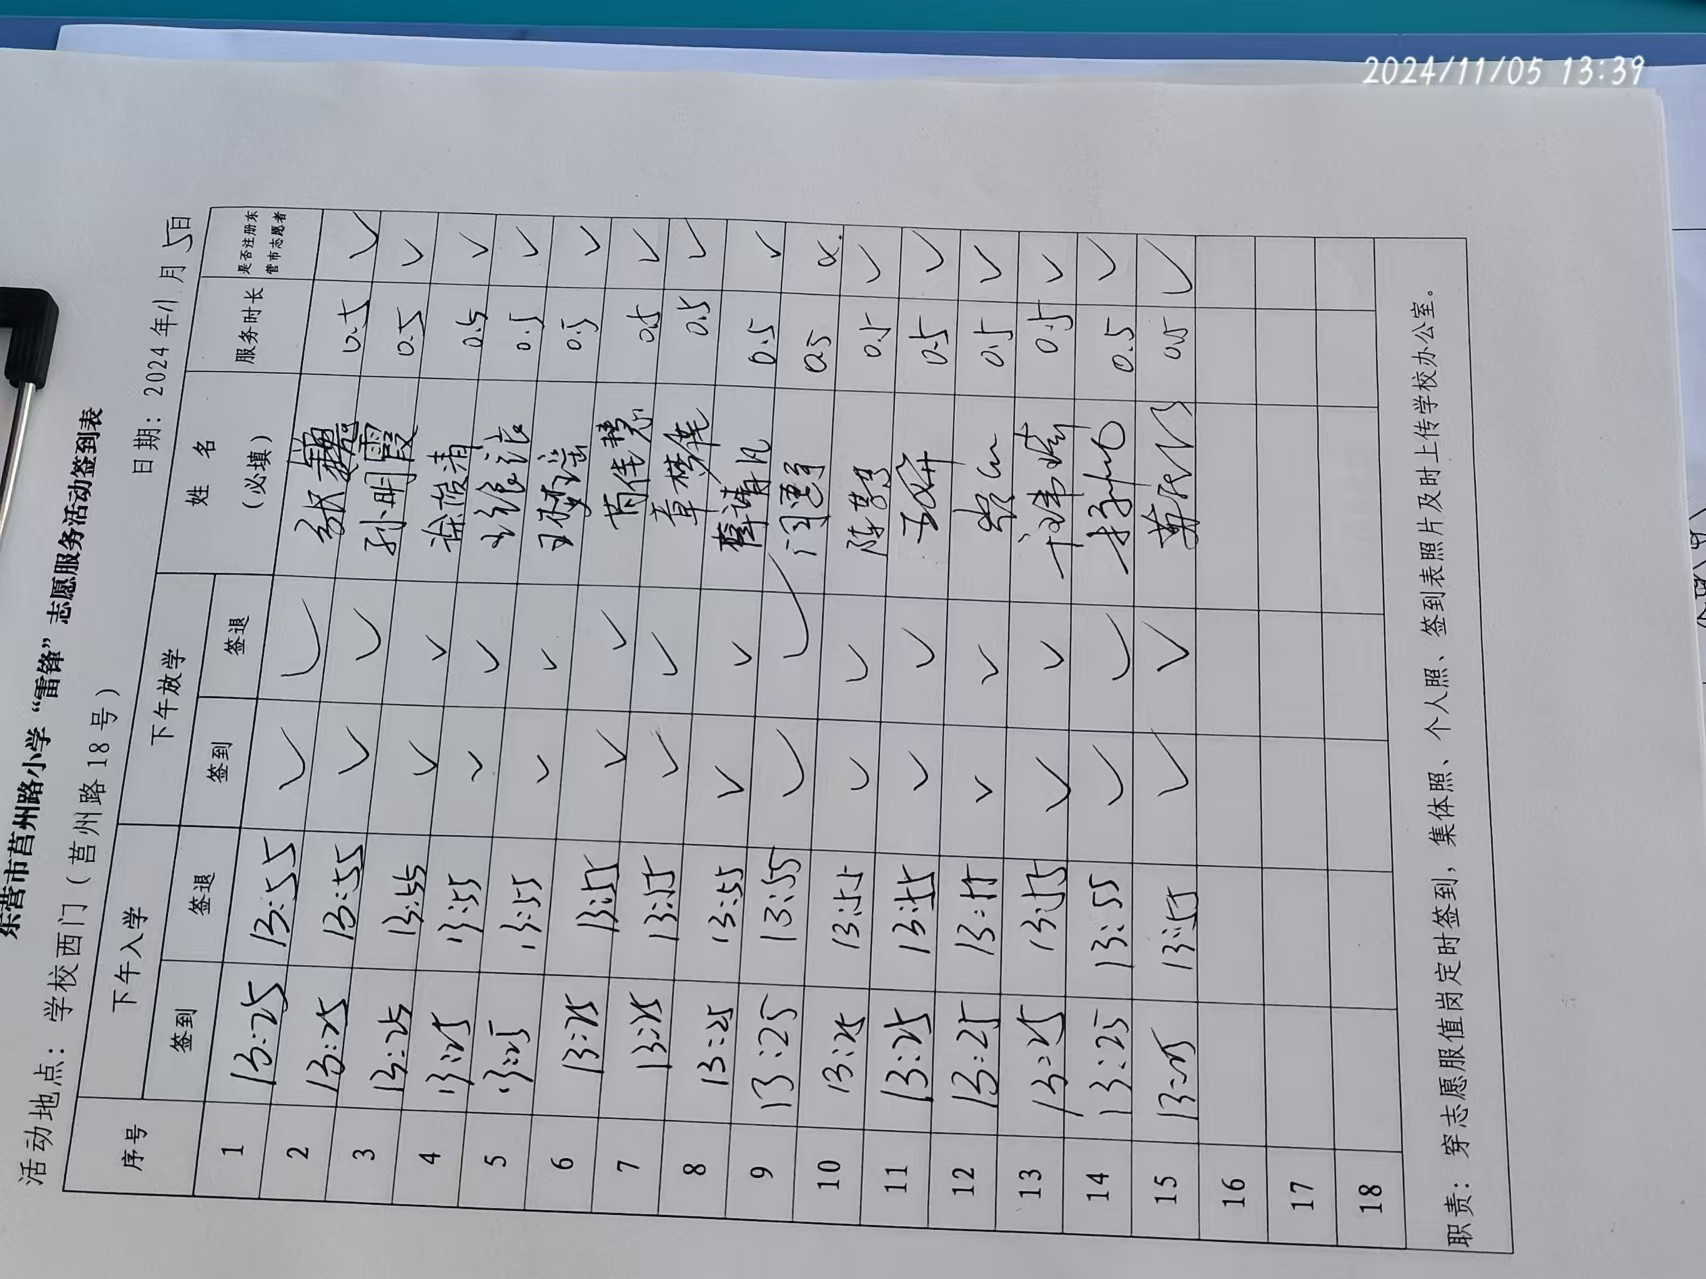 2024/11/05 13:39
东营市莒州路小学“雷锋”志愿服务活动签到表
活动地点：学校西门（莒州路18号） 日期：2024年11月5日
序号 下午入学 下午放学 姓名（必填） 服务时长 是否注册东营市志愿者
签到 签退 签到 签退
1 13:25 13:55 ✓ ✓ 张 0.5 ✓
2 13:25 13:55 ✓ ✓ 孙明霞 0.5 ✓
3 13:25 13:55 ✓ ✓ 徐俊清 0.5 ✓
4 13:25 13:55 ✓ ✓ 0.5 ✓
5 13:25 13:55 ✓ ✓ 王梦瑶 0.5 ✓
6 13:25 13:55 ✓ ✓ 芮佳慧 0.5 ✓
7 13:25 13:55 ✓ ✓ 章梦莲 0.5 ✓
8 13:25 13:55 ✓ ✓ 0.5 ✓
9 13:25 13:55 ✓ ✓ 0.5
10 13:25 13:55 ✓ ✓ 陈 0.5 ✓
11 13:25 13:55 ✓ ✓ 王 0.5 ✓
12 13:25 13:55 ✓ ✓ 0.5 ✓
13 13:25 13:55 ✓ ✓ 0.5 ✓
14 13:25 13:55 ✓ ✓ 0.5 ✓
15 13:25 13:55 ✓ ✓ 0.5 ✓
16
17
18
职责：穿志愿服值岗定时签到，集体照、个人照、签到表照片及时上传学校办公室。